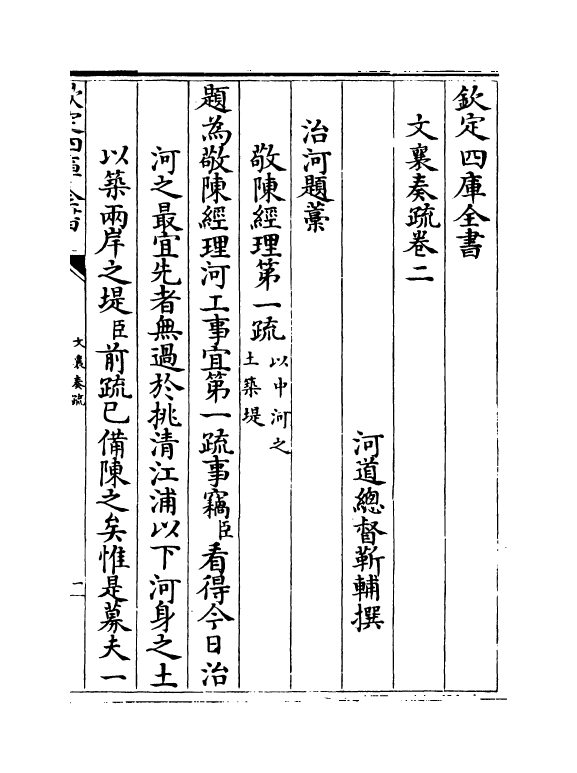 欽定四庫全書
文襄奏疏卷二
河道總督靳輔撰
治河題藁
敬陳經理第一疏以中河之土築堤
題為敬陳經理河工事宜第一疏事竊臣看得今日治
河之最宜先者無過於挑清江浦以下河身之土
以築兩岸之堤臣前疏已備陳之矣惟是募夫一
欽定四庫全書
文襄奏疏